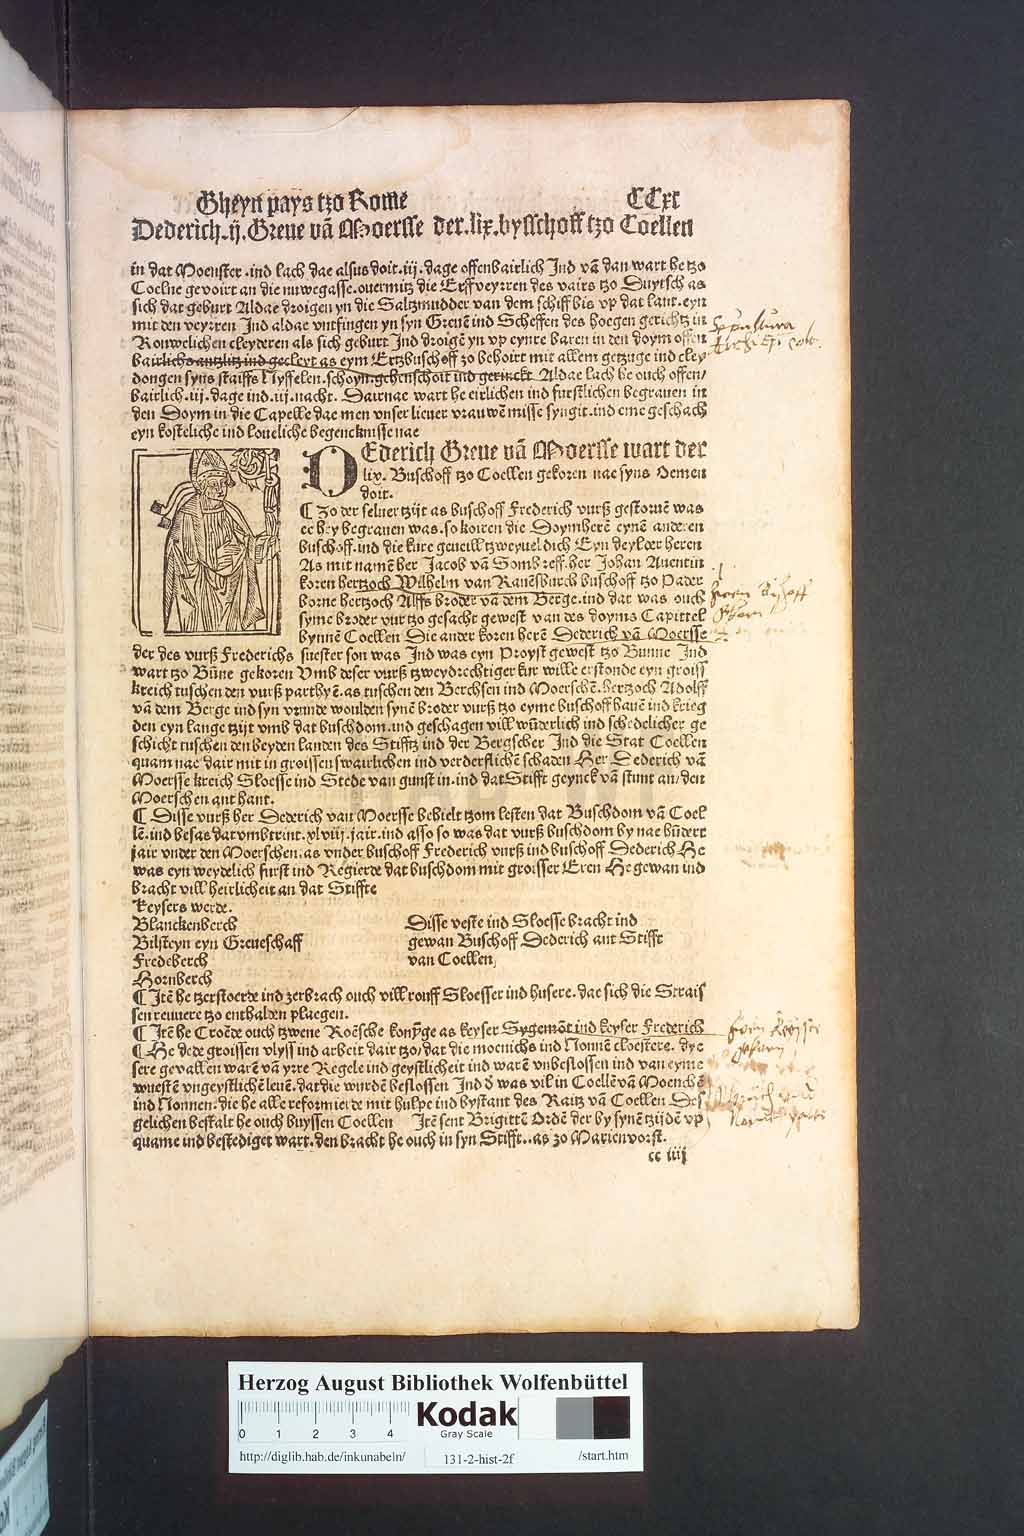 Gheyn pays tzo Rome CCxc
Dederich .ij. Greue vā Moersse der .lix. bysschoff tzo Coellen
in dat Moenster .ind lach dae alsus doit .iij. dage offenbairlich Ind vā dan wart he tzo
Coelne gevoirt an die nuwegasse. ouermitz die Erffveyrren des vairs tzo Duytsch as
sich dat geburt Aldae droigen yn die Saltzmudder van dem schiff bis vp dat lant. eyn
mit den veyrren Ind aldae vntfingen yn syn Greuē ind Scheffen des hoegen gerichtz in
Rouwelichen cleyderen als sich geburt Ind droigē yn vp eynre baren in den doym offen
bairlichs antzlitz ind gecleyt as eym Ertzbuschoff zo behoirt mit allem getzuge ind cley
dongen syns staiffs Hyffelen. schoyn. gehenschoit ind gerinckt Aldae lach he ouch offen/
bairlich .iij. dage ind .iij. nacht. Dairnae wart he eirlichen ind furstlichen begrauen in
den Doym in die Capelle dae men vnser lieuer vrauwē misse syngit. ind eme geschach
eyn kosteliche ind loueliche begencknisse nae
DEderich Greue vā Moersse wart der
lix. Buschoff tzo Coellen gekoren nae syns Oemen
doit.
¶ Zo der seluer tzijt as buschoff Frederich vurß gestoruē was
ee hey begrauen was. so koiren die Doymherē eynē anderen
buschoff. ind die kure geueill tzweyueldich Eyn deyl der heren
As mit namē her Jacob vā Sombreff. her Johan Auentin
koren hertzoch Wilhelm van Rauēsburch buschoff tzo Pader
borne hertzoch Alffs broder vā dem Berge. ind dat was ouch
syme broder vur tzo gesacht gewest van des doyms Capittel
bynnē Coellen Die ander koren herē Dederich vā Moersse
der des vurß Frederichs suester son was Ind was eyn Proyst gewest tzo Bunne Ind
wart tzo Būne gekoren Vmb deser vurß tzweydrechtiger kur wille erstonde eyn groiss
kreich tuschen den vurß parthyē. as tuschen den Berchsen ind Moerschē. hertzoch Adolff
vā dem Berge ind syn vrunde woulden synē broder vurß tzo eyme buschoff hauē ind krieg
den eyn lange tzijt vmb dat buschdom. ind geschagen vill wūderlich ind schedelicher ge
schicht tuschen den beyden landen des Stifftz ind der Bergscher Ind die Stat Coellen
quam nae dair mit in groissen swairlichen ind verderflichē schaden Her Dederich vā
Moersse kreich Sloesse ind Stede van gunst in. ind dat Stifft geynck vā stunt an/den
Moerschen ant hant.
¶ Disse vurß her Dederich van Moersse behielt tzom lesten dat Buschdom vā Coel
lē. ind besas dat vmbtrint .xlviij. jair. ind also so was dat vurß buschdom by nae hūdert
jair vnder den Moerschen. as vnder buschoff Frederich vurß ind buschoff Dederich He
was eyn weydelich furst ind Regierde dat buschdom mit groisser Eren He gewan ind
bracht vill heirlicheit an dat Stiffte
Keysers werde.
Blanckenberch Disse veste ind Sloesse bracht ind
Bilsteyn eyn Greueschaff gewan Buschoff Dederich ant Stifft
Fredeberch van Coellen
Hornberch
¶ Itē he tzerstoerde ind zerbrach ouch vill rouff Sloesser ind husere. dae sich die Strais
sen reuuere tzo enthalden plaegen.
¶ Itē he Croēde ouch tzwene Roēsche konynge as keyser Sygemōt ind keyser Frederich
¶ He dede groissen vlyss ind arbeit dair tzo/ dat die moenichs ind Nonnē cloestere. dye
sere gevallen warē vā yrre Regele ind geystlicheit ind warē vnbeslossen ind van eyme
wuestē vngeystlichē leuē. dat die wurdē beslossen Ind d' was vil in Coellē vā Moenchē
ind Nonnen. die he alle reformierde mit hulpe ind bystant des Raitz vā Coellen Des
gelichen bestalt he ouch buyssen Coellen Itē sent Brigittē Ordē der by synē tzijdē vp
quame ind bestediget wart. den bracht he ouch in syn Stifft. .as zo Marienvorst.
cc iiij
Herzog August Bibliothek Wolfenbüttel
0 1 2 3 4 Kodak
Gray Scale
http://diglib.hab.de/inkunabeln/ 131-2-hist-2f /start.htm